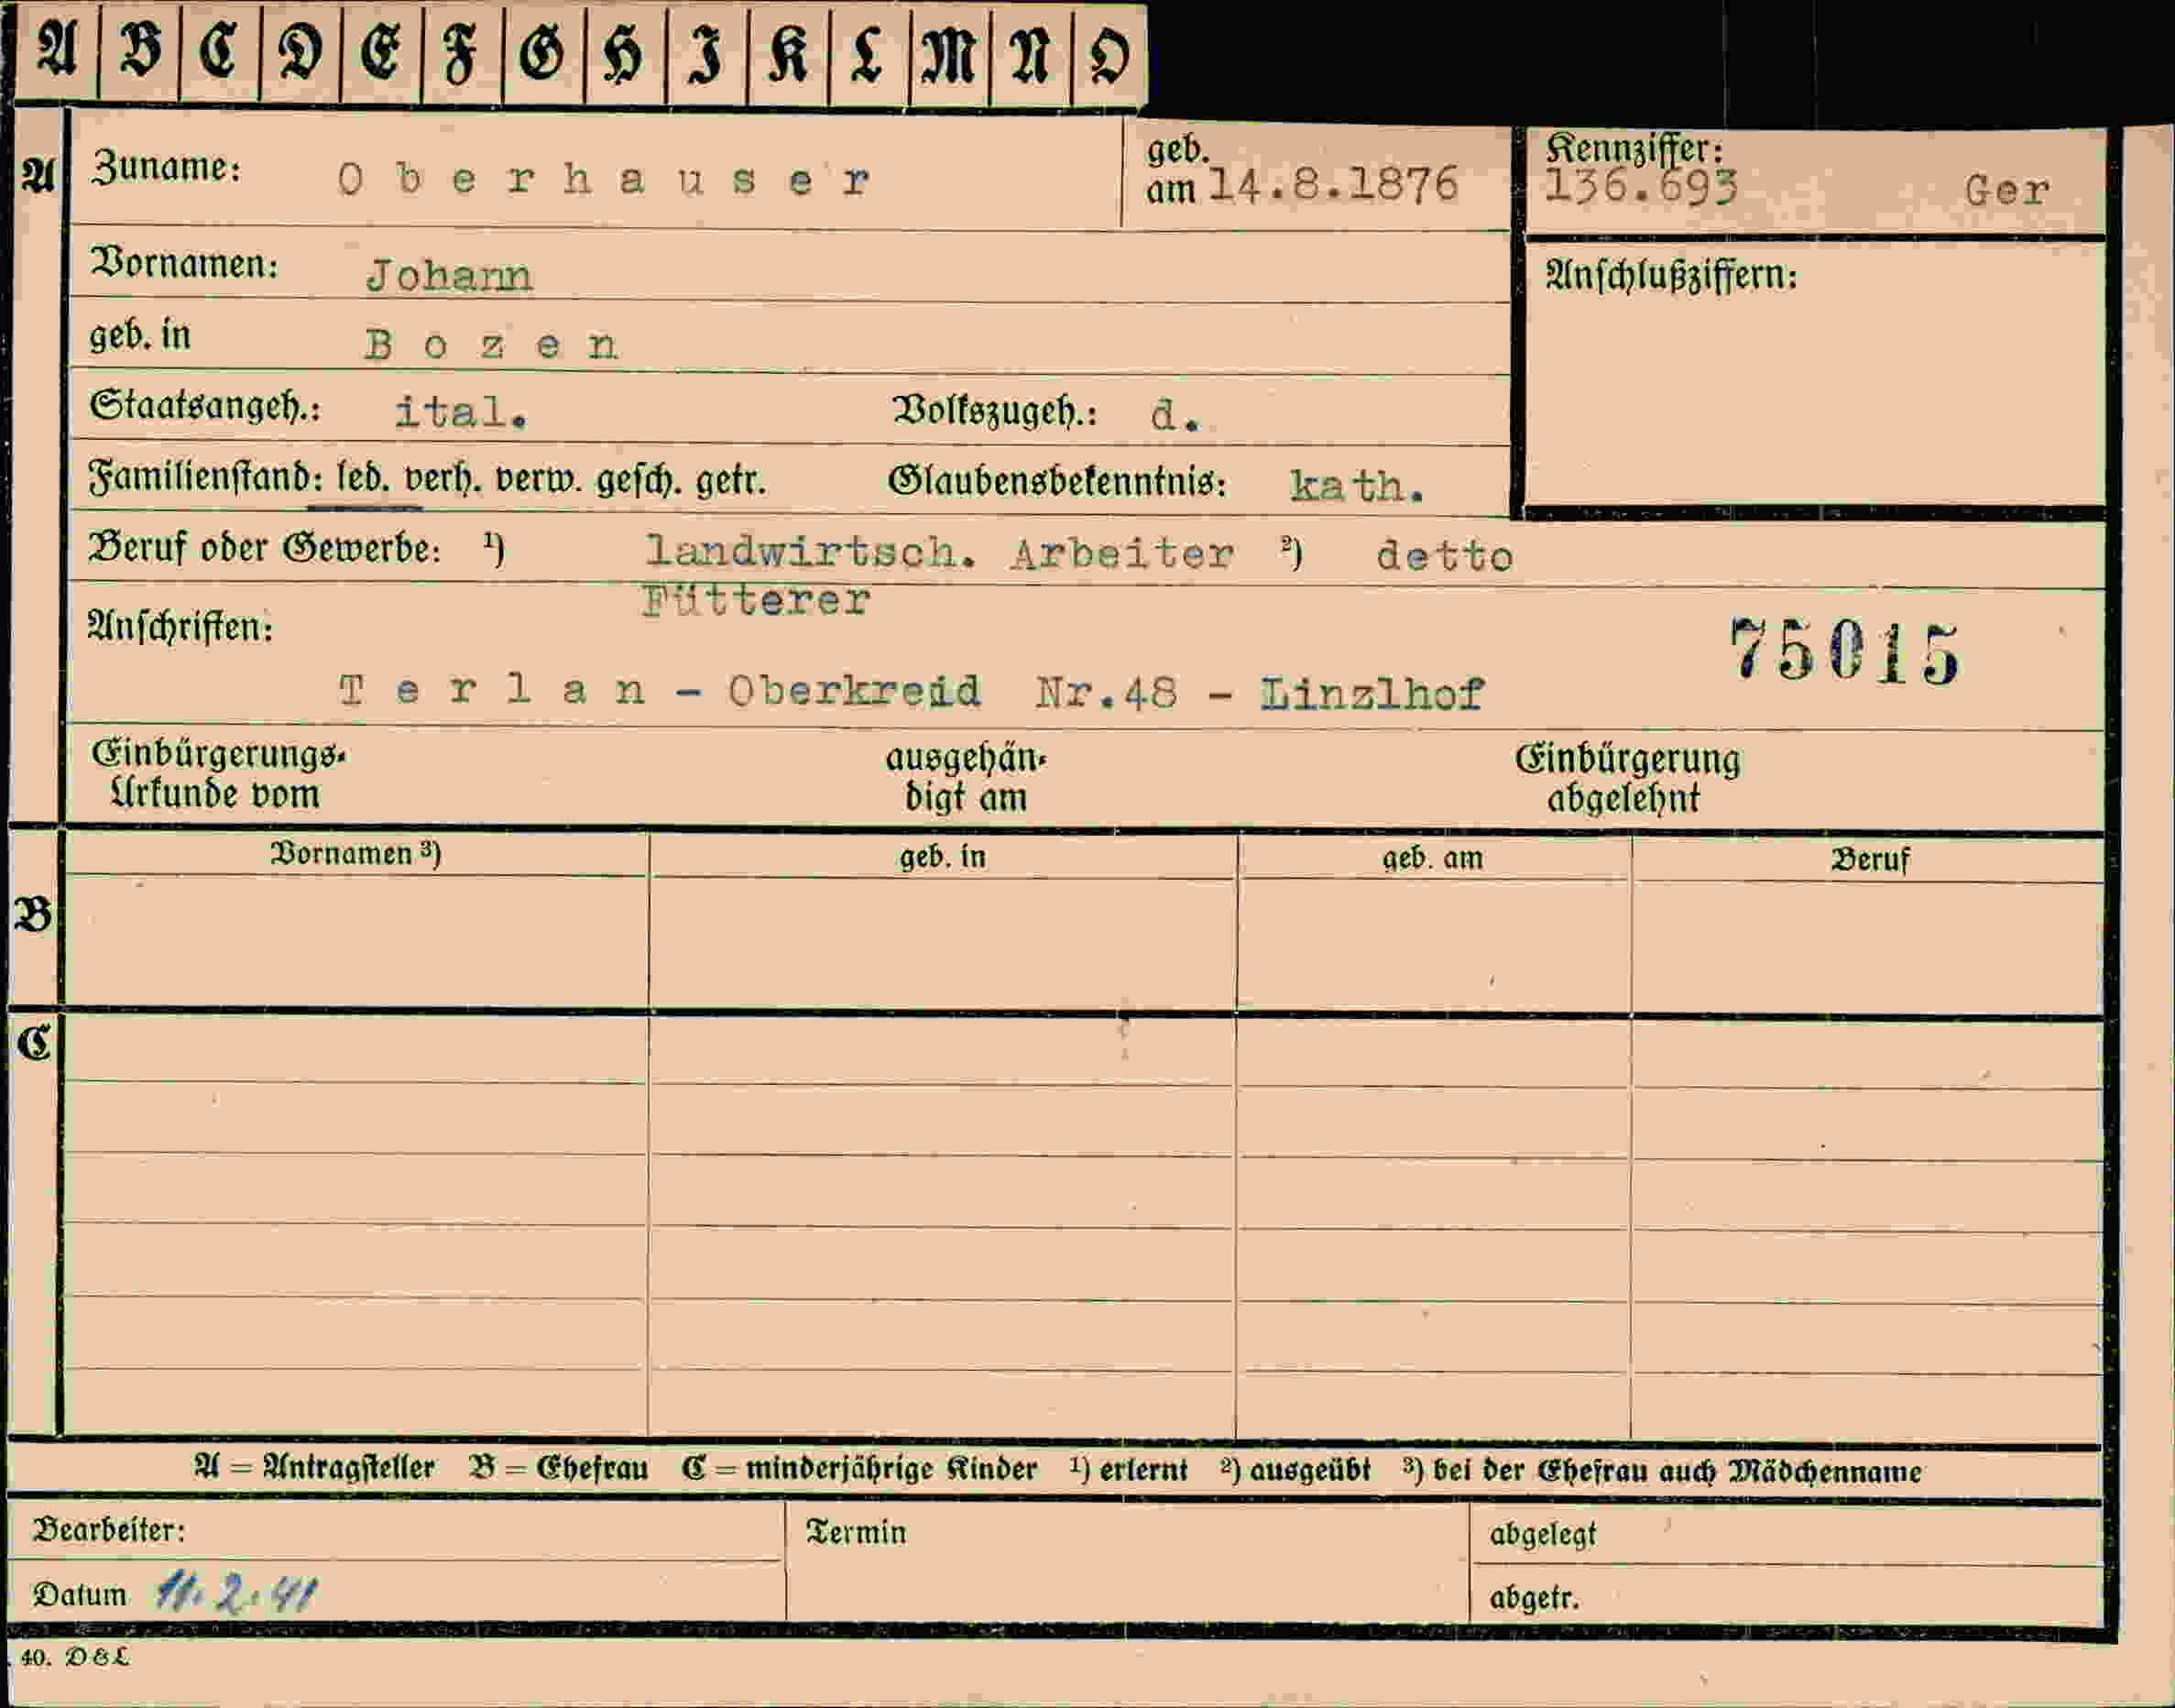 A B C D E F G H I K L M N O
A Zuname: Oberhauser geb. am 14.8.1876 Kennziffer: 136.693 Ger
Vornamen: Johann Anschlußziffern:
geb. in Bozen
Staatsangeh.: ital. Volkszugeh.: d.
Familienstand: led. verh. verw. gesch. getr. Glaubensbekenntnis: kath.
Beruf oder Gewerbe: ¹) landwirtsch. Arbeiter ²) detto
Fütterer
Anschriften: 75015
Terlan - Oberkreid Nr.48 - Linzlhof
Einbürgerungs- ausgehän- Einbürgerung
Urkunde vom digt am abgelehnt
Vornamen ³) geb. in geb. am Beruf
B
C
A = Antragsteller B = Ehefrau C = minderjährige Kinder ¹) erlernt ²) ausgeübt ³) bei der Ehefrau auch Mädchenname
Bearbeiter: Termin abgelegt
Datum 11.2.41 abgetr.
40. D&L